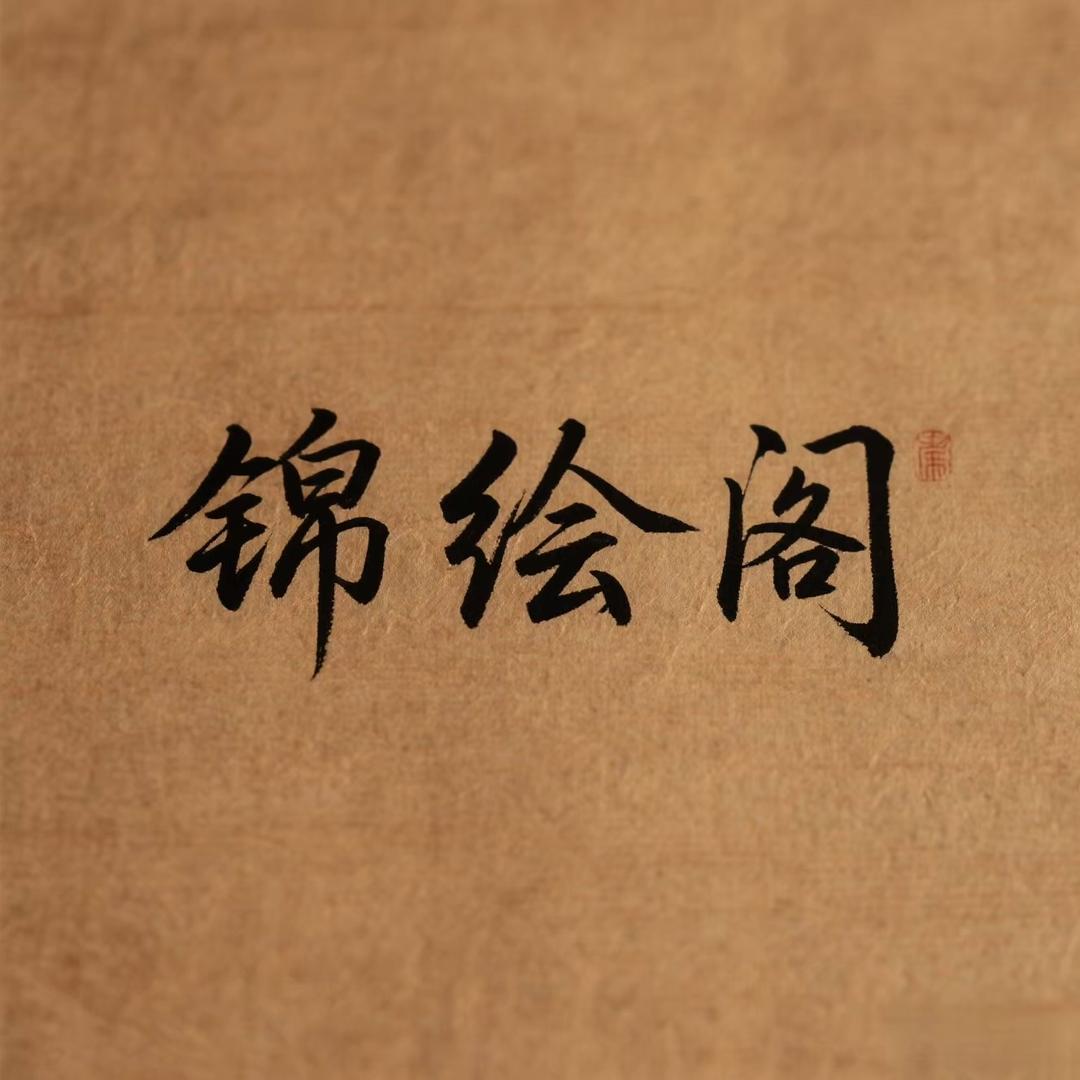 锦绘阁